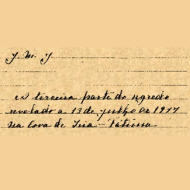 J. M. J.
A terceira parte do segredo
revelado a 13 de julho de 1917
na Cova de Iria - Fátima.